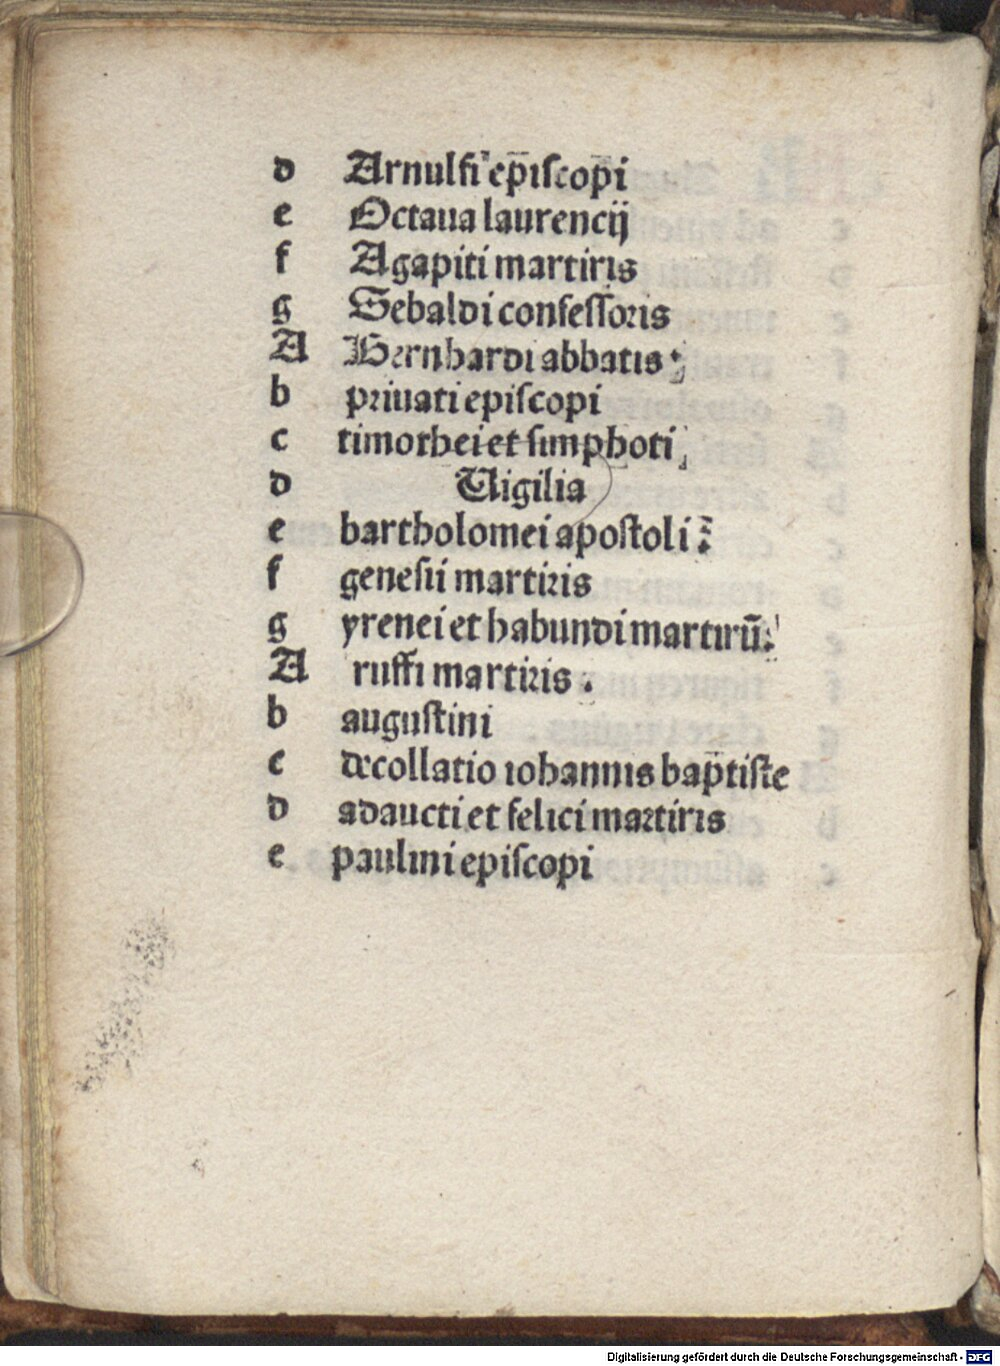 d Arnulfi ep̄iſcop̄i
e Octaua laurencij
f Agapiti martiris
g Sebaldi confeſſoris
A Bernhardi abbatis :
b priuati epiſcopi
c timothei et simphoti
d Vigilia
e bartholomei apoſtoli :
f genesii martiris
g yrenei et habundi martirū.
A ruffi martiris .
b auguſtini
c decollatio iohannis bap̄tiſte
d adaucti et felici martiris
e paulini epiſcopi
Digitalisierung gefördert durch die Deutsche Forschungsgemeinschaft - DFG